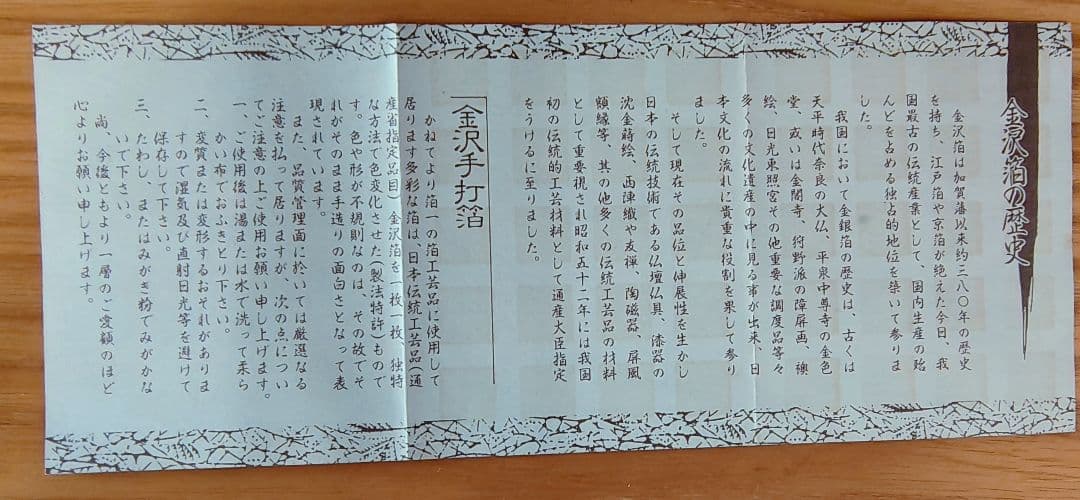 金沢箔の歴史
金沢箔は加賀藩以来約三八〇年の歴史
を持ち、江戸箔や京箔が絶えた今日、我
国最古の伝統産業として、国内生産の殆
んどを占める独占的地位を築いて参りま
した。
我国において金銀箔の歴史は、古くは
天平時代奈良の大仏、平泉中尊寺の金色
堂、或いは金閣寺、狩野派の障屏画、襖
絵、日光東照宮その他重要な調度品等々
多くの文化遺産の中に見る事が出来、日
本文化の流れに貴重な役割を果して参り
ました。
そして現在その品位と伸展性を生かし
日本の伝統技術である仏壇仏具、漆器の
沈金蒔絵、西陣織や友禅、陶磁器、屏風
額縁等、其の他多くの伝統工芸品の材料
として重要視され昭和五十二年には我国
初の伝統的工芸材料として通産大臣指定
をうけるに至りました。
金沢手打箔
かねてより箔一の箔工芸品に使用して
居ります多彩な箔は、日本伝統工芸品(通
産省指定品目)金沢箔を一枚一枚、独特
な方法で色変化させた(製法特許)もので
す。色や形が不規則なのは、その故でそ
れがそのまま手造りの面白さとなって表
現されています。
また、品質管理面に於いては厳選なる
注意を払って居りますが、次の点につい
てご注意の上ご使用お願い申し上げます。
一、ご使用後は湯または水で洗って柔ら
かい布でおふきとり下さい。
二、変質または変形するおそれがありま
すので湿気及び直射日光等を避けて
保存して下さい。
三、たわし、またはみがき粉でみがかな
いで下さい。
尚、今後ともより一層のご愛顧のほど
心よりお願い申し上げます。